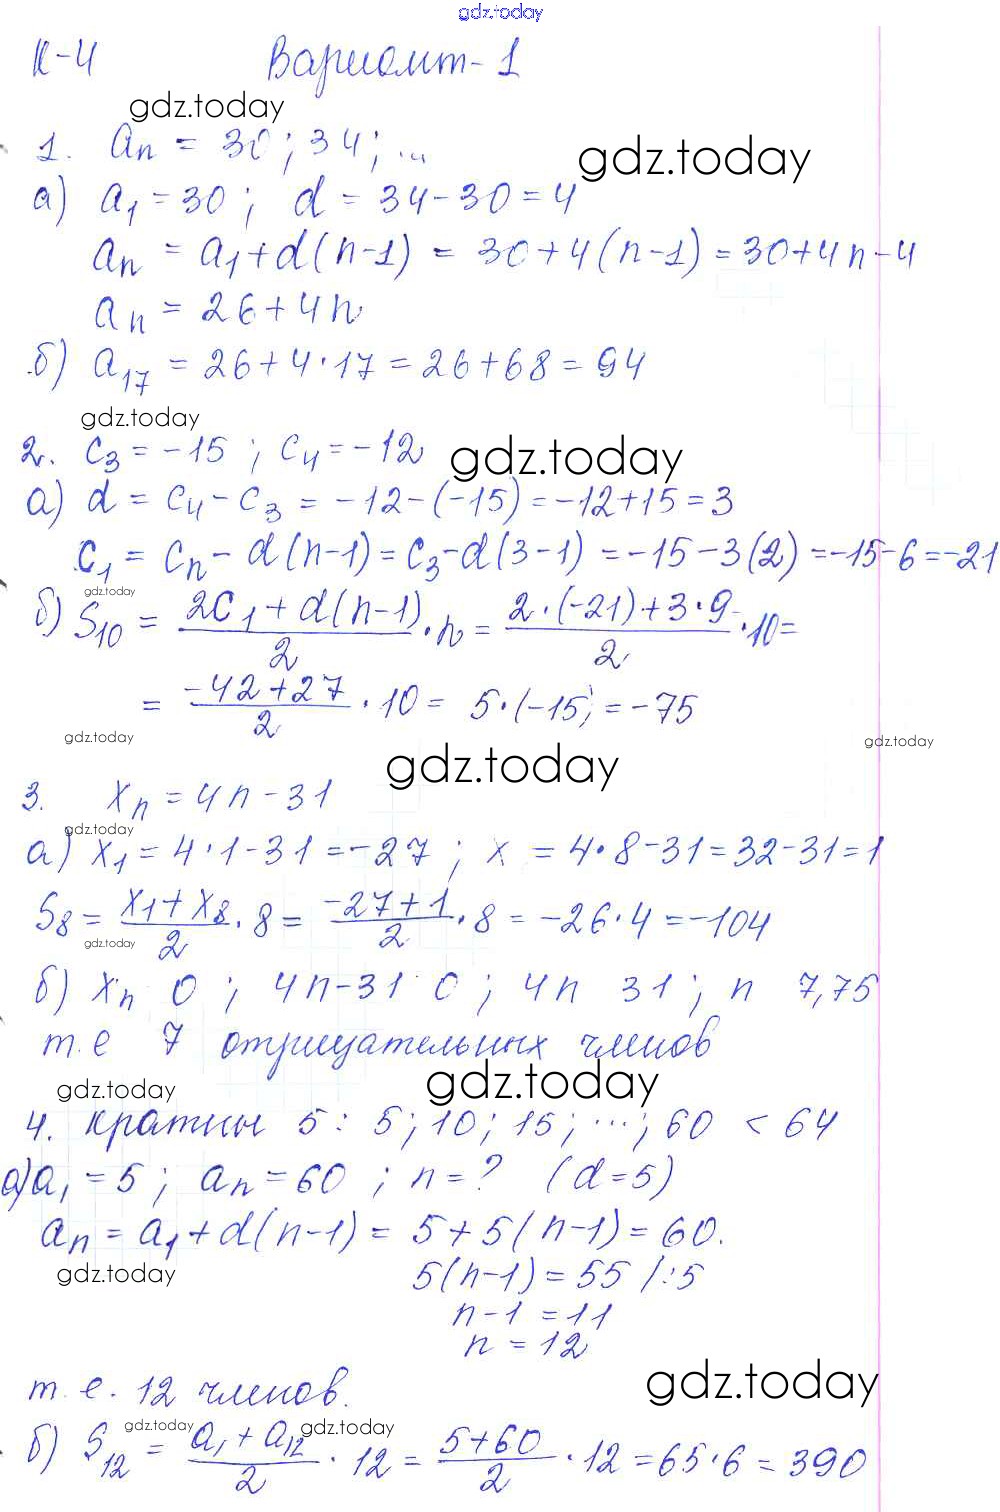 gdz.today
К-4 Вариант-1
gdz.today
1. an = 30; 34; ...
gdz.today
а) a1 = 30; d = 34-30 = 4
an = a1+d(n-1) = 30+4(n-1) = 30+4n-4
an = 26+4n
б) a17 = 26+4·17 = 26+68 = 94
gdz.today
2. c3 = -15; c4 = -12
gdz.today
а) d = c4-c3 = -12-(-15) = -12+15 = 3
c1 = cn - d(n-1) = c3-d(3-1) = -15-3(2) = -15-6 = -21
gdz.today
б) S10 = (2c1+d(n-1))/2 · n = (2·(-21)+3·9)/2 · 10 =
= (-42+27)/2 · 10 = 5·(-15) = -75
gdz.today
gdz.today
gdz.today
3. xn = 4n-31
gdz.today
а) x1 = 4·1-31 = -27; x = 4·8-31 = 32-31 = 1
S8 = (x1+x8)/2 · 8 = (-27+1)/2 · 8 = -26·4 = -104
gdz.today
б) xn 0; 4n-31 0; 4n 31; n 7,75
т.е 7 отрицательных членов
gdz.today
gdz.today
4. кратны 5: 5; 10; 15; ...; 60 < 64
а) a1 = 5; an = 60; n = ? (d=5)
an = a1+d(n-1) = 5+5(n-1) = 60.
gdz.today
5(n-1) = 55 /:5
n-1 = 11
n = 12
т. е. 12 членов.
gdz.today
gdz.today
gdz.today
б) S12 = (a1+a12)/2 · 12 = (5+60)/2 · 12 = 65·6 = 390